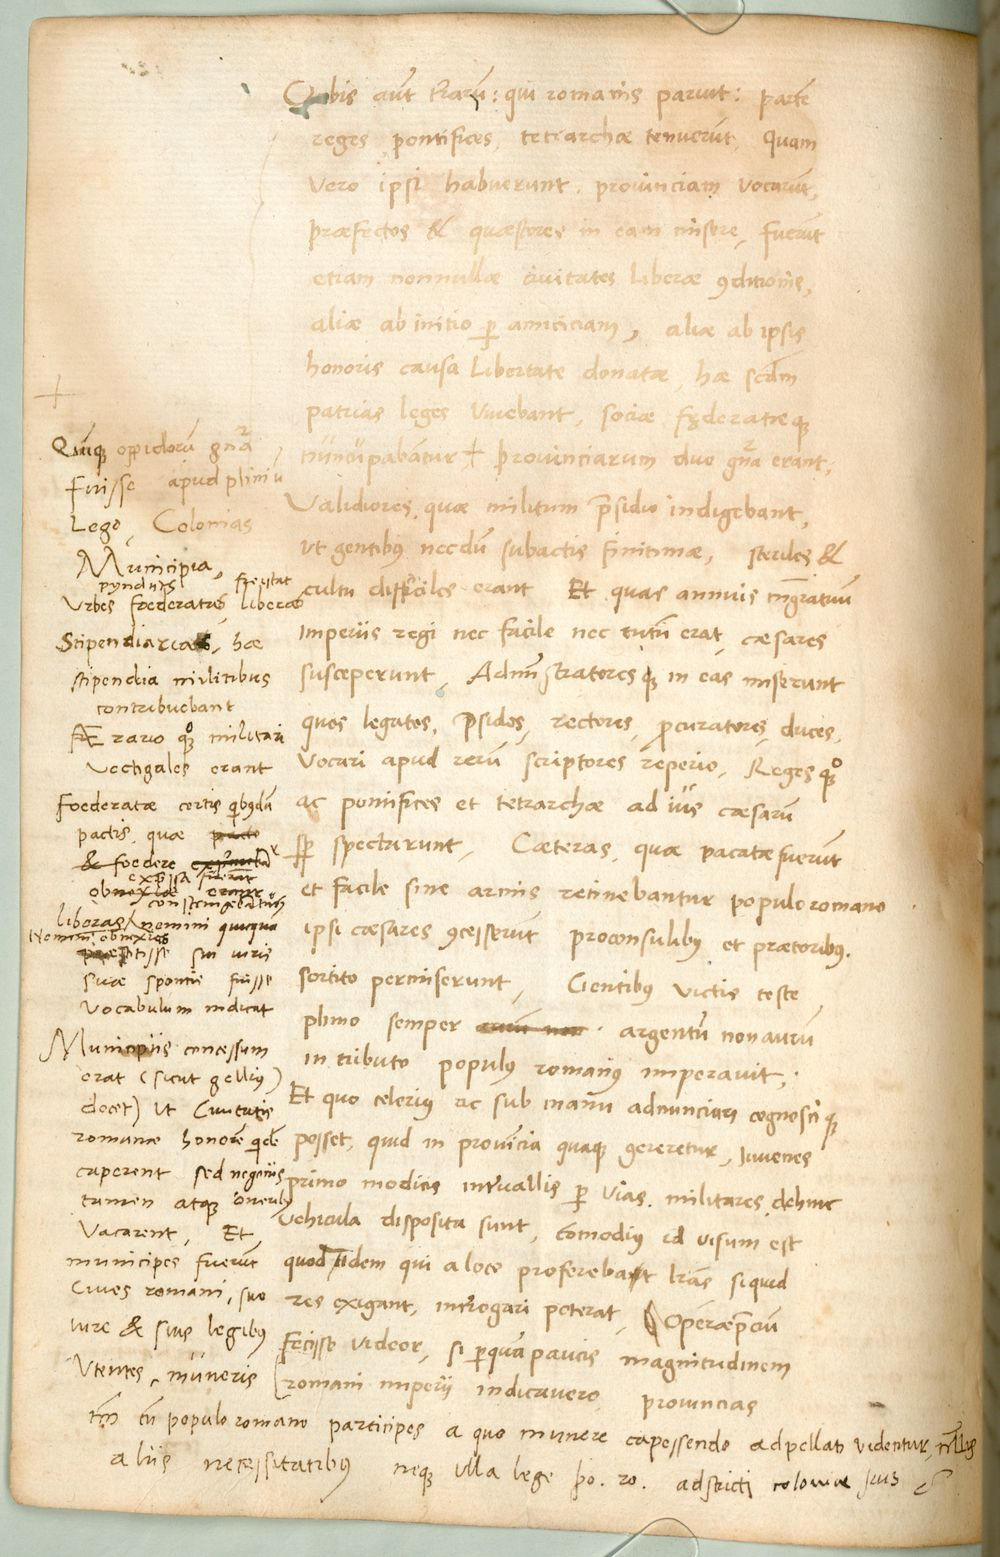 Orbis aũt terarũ: qui romanis paruit: partẽ
reges pontifices, tetrarchæ tenuerũt, Quam
vero ipsi habuerunt, prouinciam vocarũt,
præfectos & quæstores in eam misere, fuerũt
etiam nonnullæ ciuitates liberæ ꝯditionis,
aliæ ab initio ꝑ amiciciam, aliæ ab ipsis
honoris causa libertate donatæ, hæ scdm
patrias leges viuebant, sociæ fęderatæque
nuncupabãtur + prouinciarum duo gña erant,
Validiores, quæ militum p̃sidio indigebant,
vt gentibus necdũ subactis finitimæ, steriles &
cultu difficiles erant Et quas annuis mgr̃atuũ
imperiis regi nec facile nec tutũ erat, cæsares
susceperunt, Administratoresqꝫ in eas miserunt
quos legatos, p̃sides, rectores, ꝓcuratores, duces,
vocari apud rerũ scriptores reperio, Reges qꝫ
ac pontifices et tetrarchæ ad ius cæsarũ
sꝑ spectarunt, Cæteras, quæ pacatæ fuerũt
et facile sine armis retinebantur populo romano
ipsi cæsares ꝯcesserũt proconsulibꝰ et prætoribꝰ.
sortito permiserunt, Gentibꝰ victis teste
plinio semper argentũ non aurũ
in tributo populꝰ romanꝰ imperauit,
Et quo celeriꝰ ac sub manũ adnunciari cognosciqꝫ
posset, quid in prouincia quaqꝫ gereretur, Iuuenes
primo modicis intuallis ꝑ vias militares dehinc
vehicula disposita sunt, Comodiꝰ id visum est
quod iidem qui a loco proferebant lr̃as siquid
res exigant, introgari poterat, Operæp̃ciũ
fecisse videor, si ꝑquã paucis magnitudinem
romani imperii indicauero, prouincias
Quinqꝫ oppidorũ gña
fuisse apud pliniũ
Lego, Colonias
Municipia,
Vrbes fœderatas liberas
Stipendiarias, hæ
stipendia militibus
contribuebant
Ærario qꝫ militari
vectigales erant
Foederatæ certis qibꝰdã
pactis, quæ
& foedere
exp̃ssa fuerãt
constringebatur
liberas nemini
nemini obnoxias
sui iuris
suæ spontis fuisse
vocabulum indicat
Municipiis concessum
erat (sicut gelliꝰ
docet) vt Ciuitatis
romanæ honorẽ qidẽ
caperent sed negociis
tamen atqꝫ oneribꝰ
vacarent, Et
municipes fuerũt
Ciues romani, suo
iure & suis legibꝰ
vtentes, muneris
tm̃ cũ populo romano participes a quo munere capessendo adpellati videntur, nullis
aliis necessitatibꝰ neqꝫ vlla lege po. ro. adstricti coloniæ ius